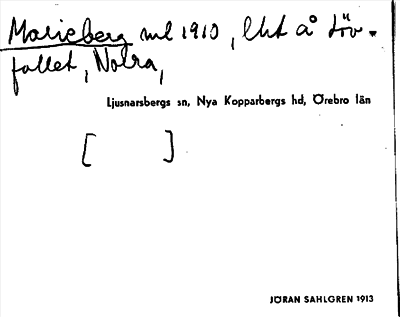 Marieberg ml 1910, lht å Löv-
fallet, Nolra,
Ljusnarsbergs sn, Nya Kopparbergs hd, Örebro län
[ ]
JÖRAN SAHLGREN 1913